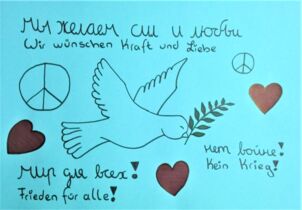 Мы желаем сил и любви
Wir wünschen Kraft und Liebe
нет войне!
Kein Krieg!
Мир для всех!
Frieden für alle!